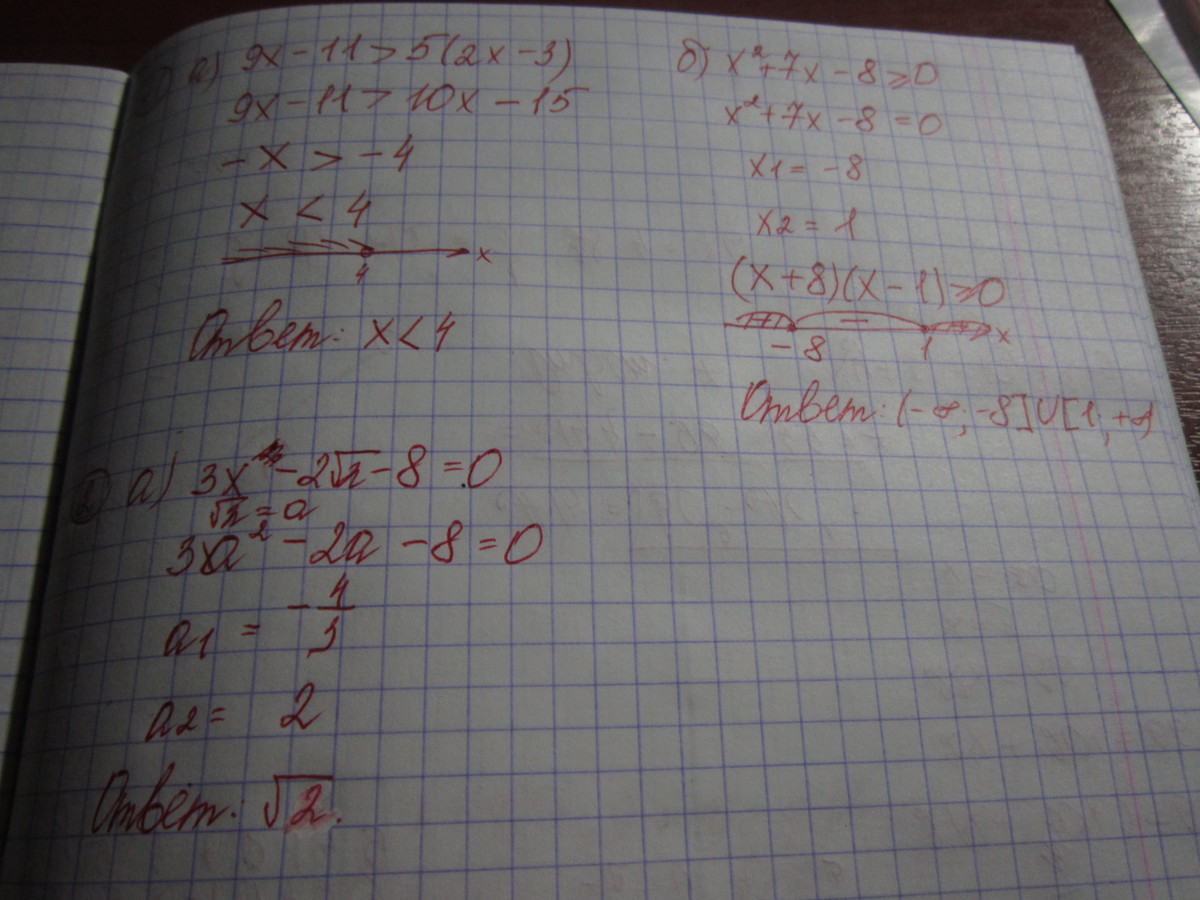 1) а) 9x - 11 > 5(2x - 3)
9x - 11 > 10x - 15
-x > -4
x < 4
x
4
Ответ: x < 4
б) x² + 7x - 8 ≥ 0
x² + 7x - 8 = 0
x1 = -8
x2 = 1
(x + 8)(x - 1) ≥ 0
− x
-8 1
Ответ: (-∞; -8] ∪ [1; +∞)
2) а) 3x - 2√x - 8 = 0
√x = a
3a² - 2a - 8 = 0
a1 = -4/3
a2 = 2
Ответ: √2.